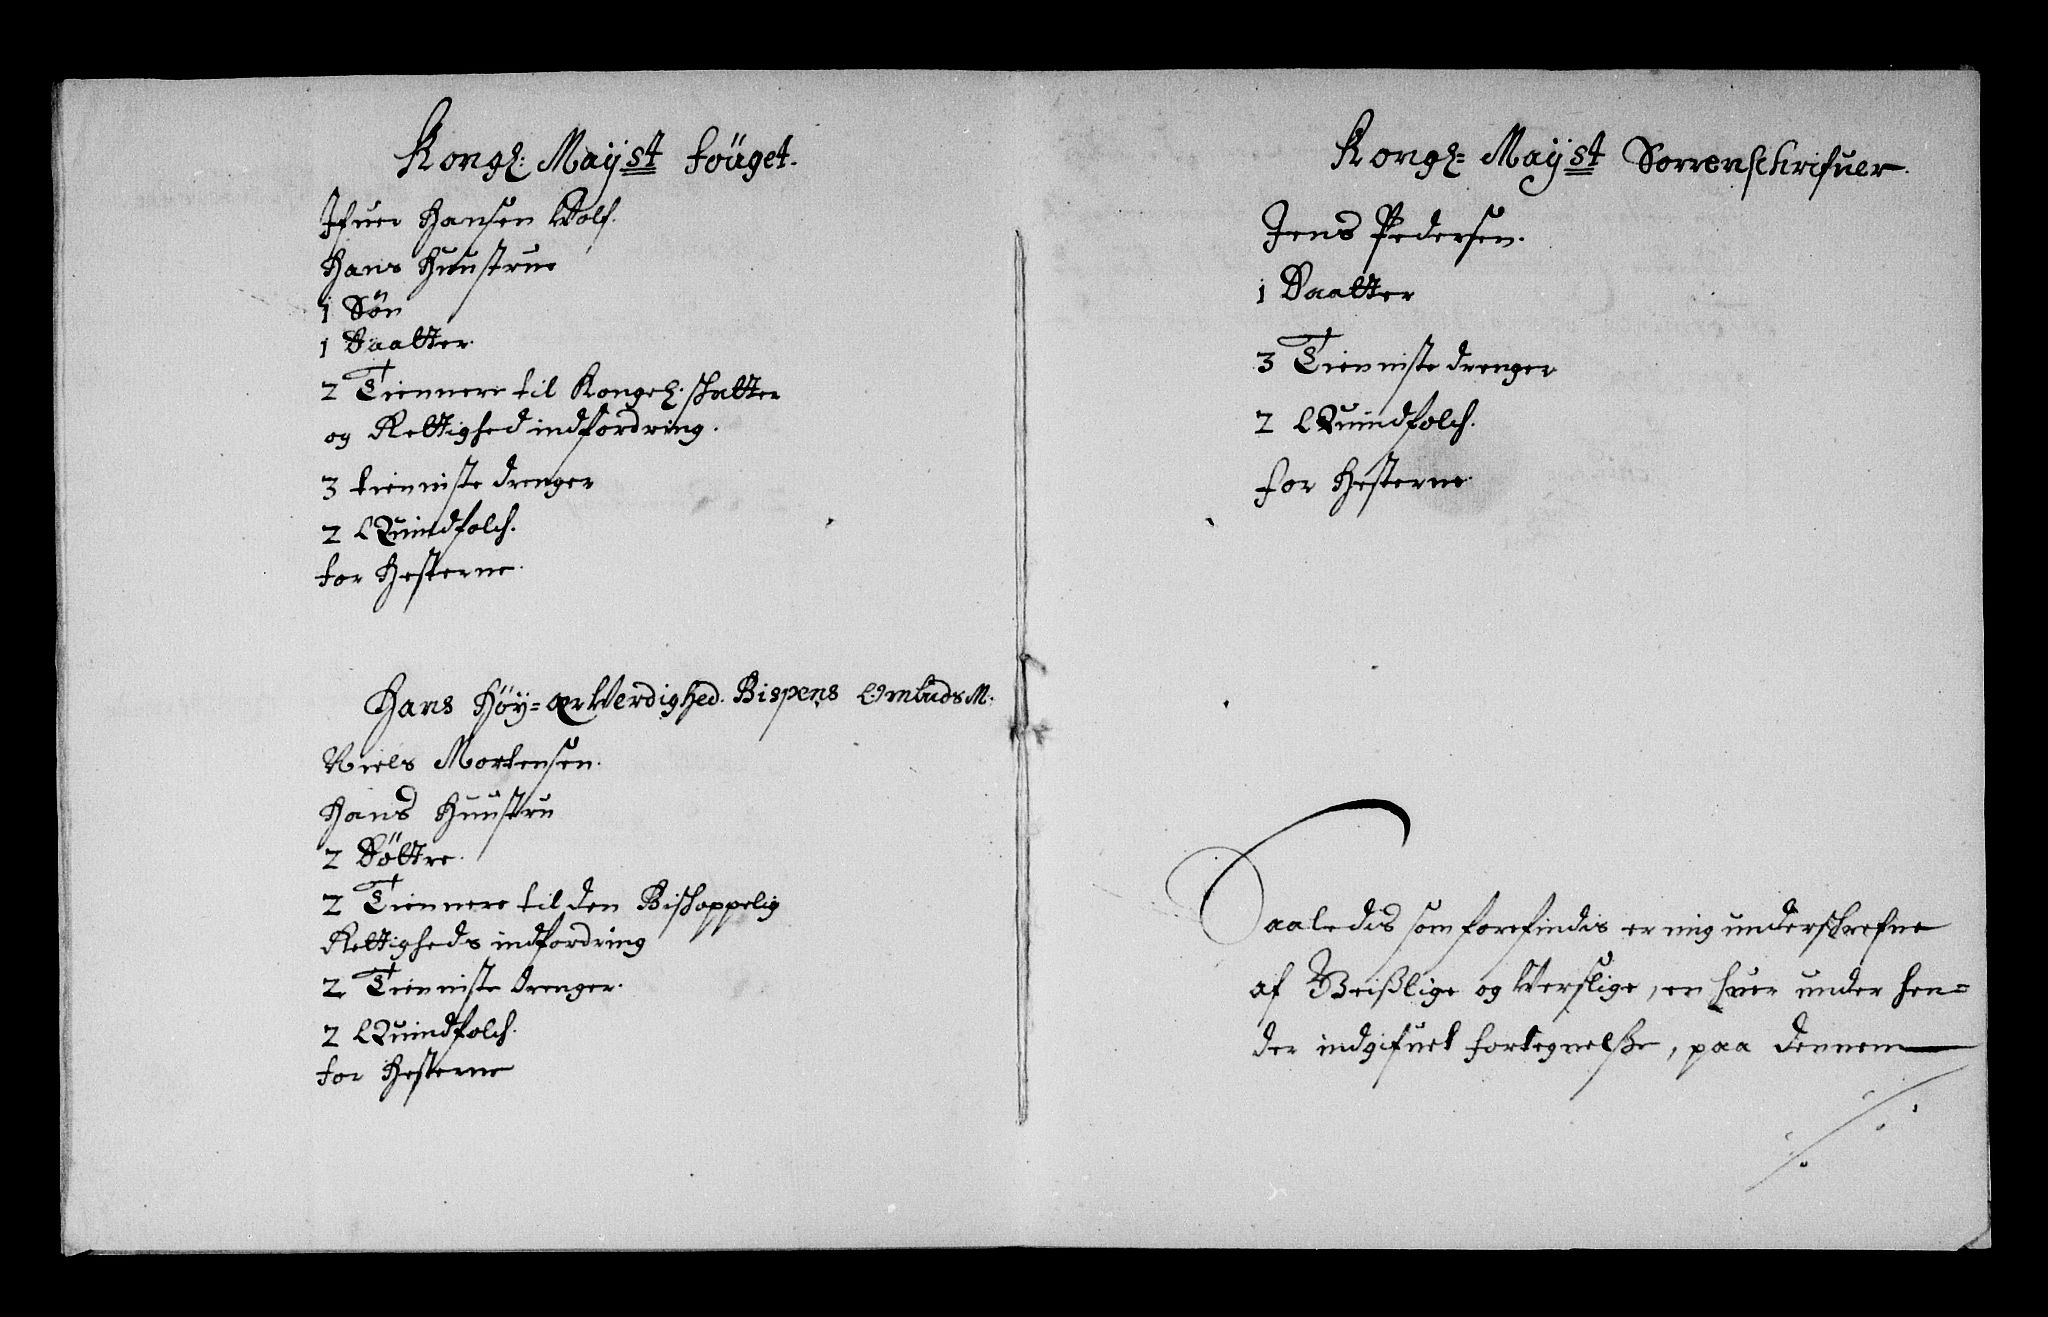 Kongl: Mayst fouget.
Ifuer Hansen Wolf.
Hans Huustrue
1 Sön
1 Daatter
2 Tiennere til Kongel. skatter
og Rettighed indfordring.
3 tienniste drenger
2 Quindfolch.
for Hesterne.
Hans Höy=ærWerdighed. Bispens OmbudsM:
Niels Mortensen.
Hans Huustru
2 Döttre.
2 Tiennere til den Bischoppelig
Rettigheds indfordring
2 Tienniste drenger.
2 Quindfolch.
for Hesterne
Kongl= Mayst Sorrenschrifuer.
Jens Pedersen.
1 Daatter
3 Tienniste drenger
2 Quindfolch.
for Hesterne
Saaledis som forefindis er mig underschrefne
af Geistlige og Verslige, en huer under hen=
der indgifuet fortegnelse, paa dennem